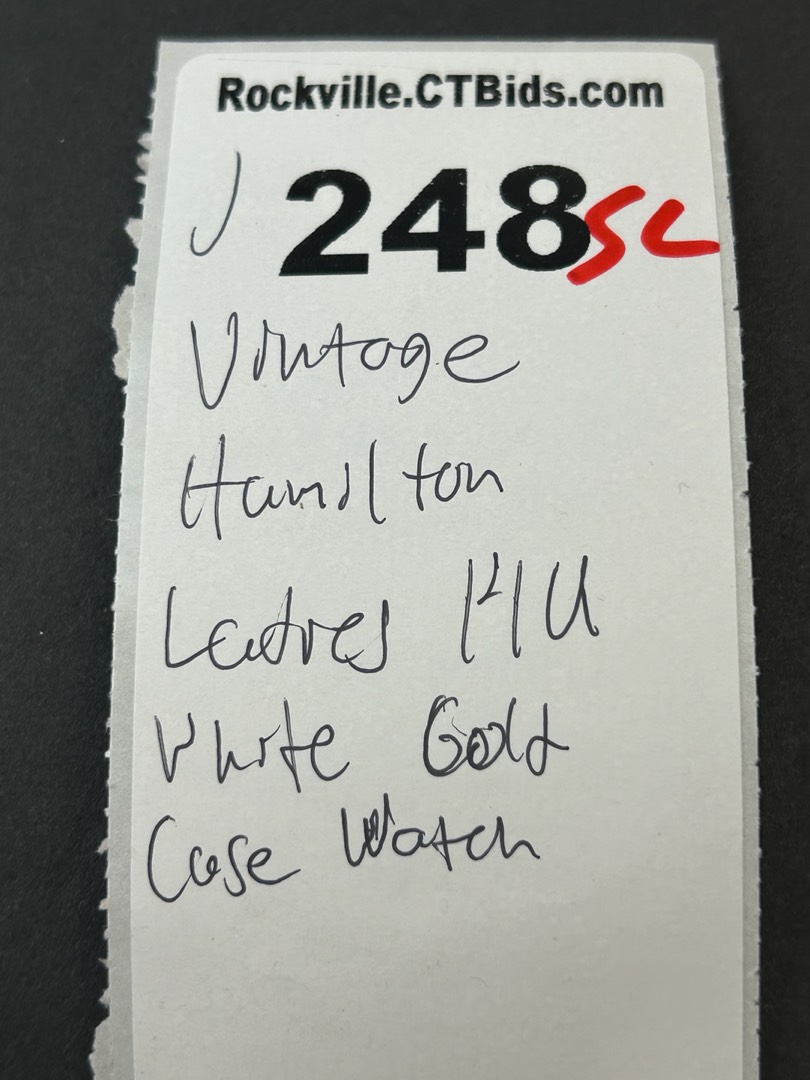 Rockville.CTBids.com
J 248 SL
Vintage
Hamilton
Ladies 14K
White Gold
Case Watch